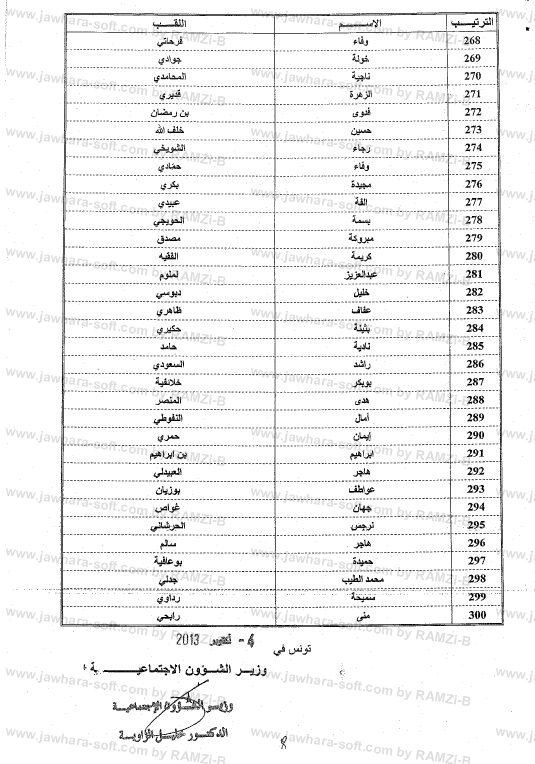 الترتيب الإســـم اللقـب
268 وفاء فرحاتي
269 خولة جوادي
270 ناجية المحامدي
271 الزهرة قنبري
272 فدوى بن رمضان
273 حسين خلف الله
274 رجاء الشويخي
275 وفاء حمادي
276 مجيدة بكري
277 الفة عبيدي
278 بسمة الحويجي
279 مبروكة مصدق
280 كريمة الفقيه
281 عبدالعزيز لملوم
282 خليل دبوسي
283 عفاف طاهري
284 بثينة حكيري
285 نادية حامد
286 راشد السعودي
287 بوبكر خلائفية
288 هدى المنصر
289 أمال النفوطي
290 إيمان حمري
291 ابراهيم بن ابراهيم
292 هاجر العبيدلي
293 عواطف بوزيان
294 جهان غواص
295 نرجس الحرشاني
296 هاجر سالم
297 حميدة بوعافية
298 محمد الطيب جدلي
299 سميحة رداوي
300 منى رابحي
تونس في 4 - أكتوبر 2013
وزيـر الشـؤون الاجتماعيـــة
وزير الشؤون الإجتماعيــة
الدكتور خليل الزاويــة
8
www.jawhara-soft.com by RAMZi-B